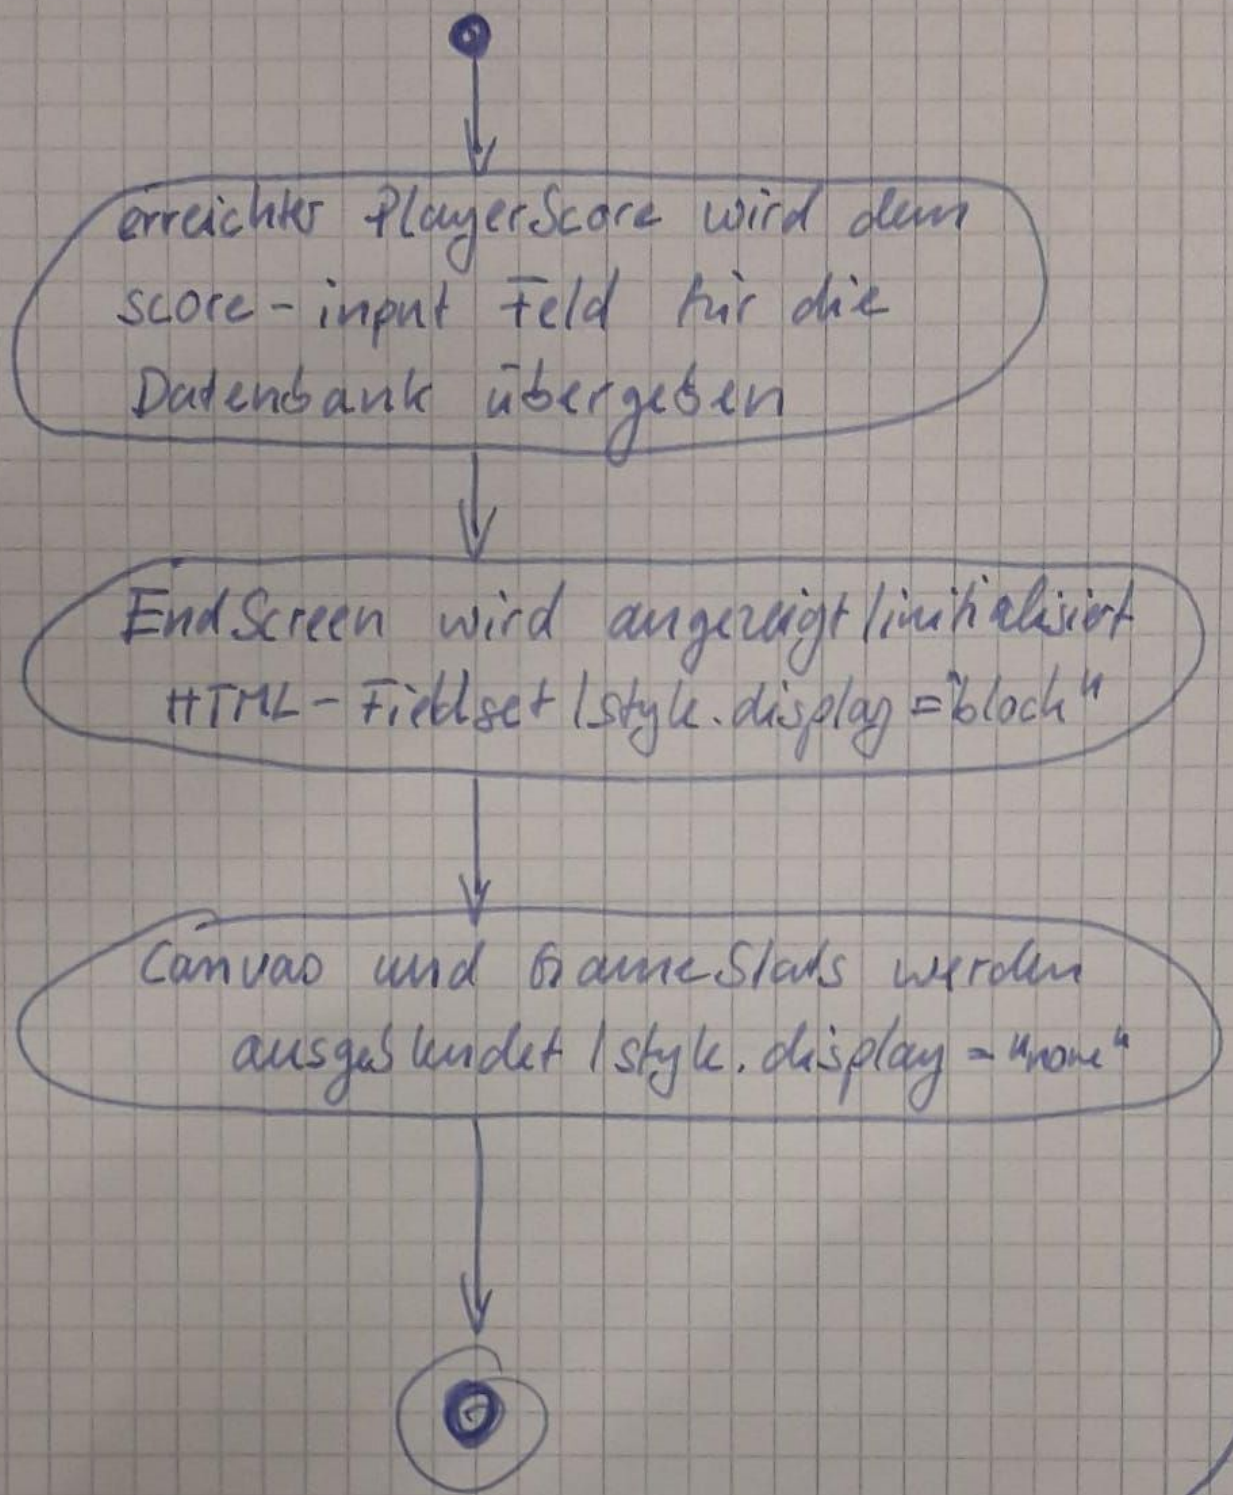 erreichter PlayerScore wird dem
score-input Feld für die
Datenbank übergeben
EndScreen wird angezeigt/initialisiert
HTML-Fieldset/style.display="block"
Canvas und GameStats werden
ausgeblendet/style.display="none"